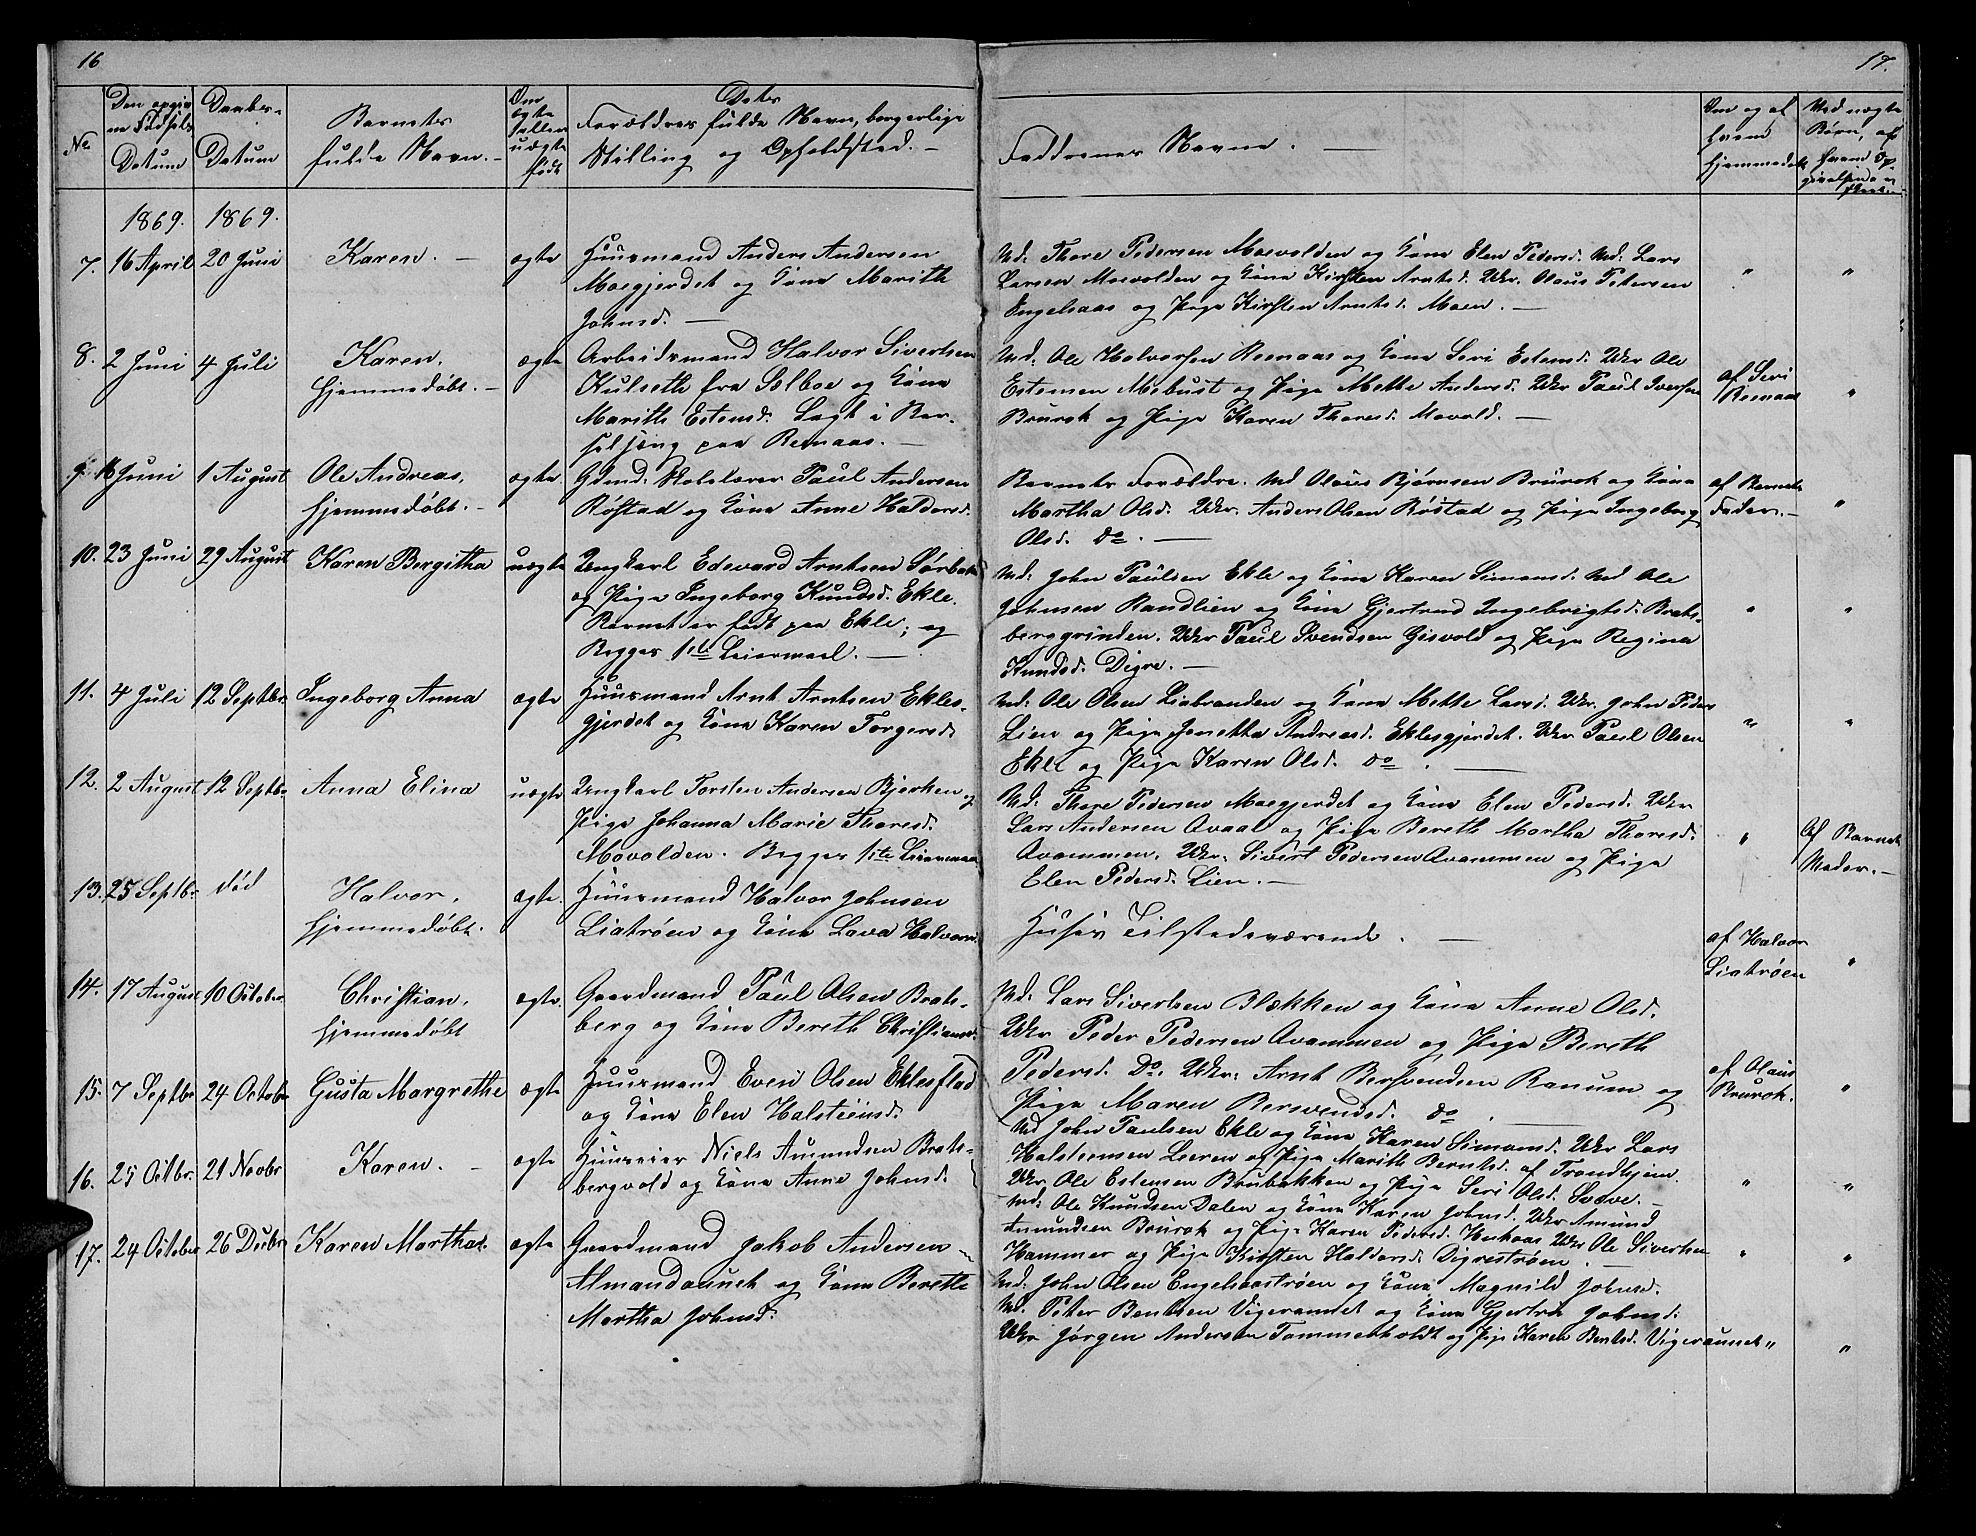 16
No
Den opgiv
ne Fødsels
Datum
Daabs-
Datum
Barnets
fulde Navn. -
Om
ægte
eller
uægte
født
Dets
Forældres fulde Navn, borgerlige
Stilling og Opholdsted. -
1869. 1869.
7. 16 April 20 Juni Karen. - ægte Huusmand Anders Andersen
Moegjerdet og Kone Marith
Johnsd. -
8. 2 Juni 4 Juli Karen, ægte Arbeidsmand Halvor Sivertsen
hjemmedøbt. - Kulseth fra Selboe og Kone
Marith Estensd. Lagt i Bar-
selseng paa Remaas. -
9. 16 Juni 1 August Ole Andreas, ægte. Gdmd. Skolelærer Paul Andersen
hjemmedøbt. - Røstad og Kone Anne Haldorsd.
10. 23 Juni 29 August Karen Bergitha uægte Ungkarl Edevard Arntsen Sørbak
og Pige Ingeborg Knudsd. Ekle.
Barnet er født paa Ekle; og
Begges 1ste Leiermaal. -
11. 4 Juli 12 Septbr. Ingeborg Anna ægte Huusmand Arnt Arntsen Ekles-
gjerdet og Kone Karen Torgersd.
12. 2 August 12 Septbr. Anna Elina uægte Ungkarl Torsten Andersen Bjerken og
Pige Johanna Marie Thoresd.
Movolden. Begges 1ste Leiermaal
13. 25 Septbr. død Halvor, ægte. Huusmand Halvor Johnsen
hjemmedøbt. Liatrøen og Kone Lava Halvorsd.
14. 17 August 10 Octobr. Christian, ægte. Gaardmand Paul Olsen Brats-
hjemmedøbt berg og Kone Bereth Christiansd.
15. 7 Septbr 24 Octobr. Gusta Margrethe ægte Huusmand Even Olsen Eklesflad
og Kone Elen Halsteensd.
16. 25 Octbr. 21 Novbr Karen. - ægte Huuseier Niels Amundsen Brats-
bergvold og Kone Anne Johnsd.
17. 24 October 26 Decbr Karen Martha. ægte Gaardmand Jakob Andersen
Almandaunet og Kone Bereth
Martha Johnsd.
17.
Faddrenes Navne. -
Om og af
hvem
hjemmedøbt
Ved uægte
Børn, af
hvem Op-
givelsen er
skeet
Md. Thore Pedersen Moevolden og Kone Elen Pedersd. Md. Lars
Larsen Moevolden og Kone Kirsten Arntsd. Ukr. Olaus Petersen " "
Engelsaas og Pige Kirsten Arntsd. Moen. -
Md. Ole Halvorsen Remaas og Kone Seri Estensd. Ukr Ole
Estensen Mebust og Pige Mette Andersd. Ukr Paul Iversen af Seri
Brurok og Pige Karen Thoresd. Movold. - Remaas "
Barnets Forældre. Md Olaus Bjørnsen Brurok og Kone af Barnets
Martha Olsd. Ukr. Anders Olsen Røstad og Pige Ingeborg Fader. - "
Olsd. do. -
Md. John Paulsen Ekle og Kone Karen Simonsd. Md Ole
Johnsen Randlien og Kone Gjertrud Ingebrigtsd. Brats- " "
berggrinden. Ukr Paul Svendsen Gisvold og Pige Regina
Knudsd. Digre. -
Md. Ole Olsen Liabranden og Kone Mette Larsd. Ukr. John Peders
Lien og Pige Jonetta Andreasd. Eklesgjerdet. Ukr Paul Olsen " "
Ekle og Pige Karen Olsd. do. -
Md. Thore Pedersen Moegjerdet og Kone Elen Pedersd. Ukr
Lars Andersen Avaal og Pige Bereth Martha Thoresd. " Af Barnets
Avammen. Ukr. Sivert Pedersen Avammen og Pige Moder. -
Elen Pedersd. Lien. -
Huset Tilstedeværende. - af Halvor
Liatrøen "
Md. Lars Sivertsen Blekken og Kone Anne Olsd.
Ukr Peder Pedersen Avammen og Pige Bereth
Pedersd. Do. Ukr. Arnt Bersvendsen Ranum og af Olaus
Pige Maren Bersvendsd. do. Brurok. "
Md John Paulsen Ekle og Kone Karen Simonsd. Ukr Lars
Halsteensen Leeren og Pige Marith Berntsd. af Trondhjem.
Ukr Ole Estensen Brubakken og Pige Seri Olsd. Sveve. - " "
Md. Ole Knudsen Dalen og Kone Karen Johnsd. Ukr Amund
Amundsen Brurok og Pige Karen Pedersd. Ukr Ole Sivertsen
Hammer og Pige Kirsten Haldorsd. Digrestrøen. - " "
Md. John Olsen Engelsaastrøen og Kone Magnild Johnsd.
Md. Peter Bentsen Vigeraunet og Kone Gjertru Johnsd.
Ukr Jørgen Andersen Tommesholdt og Pige Karen Bentsd. Vigeraunet " "